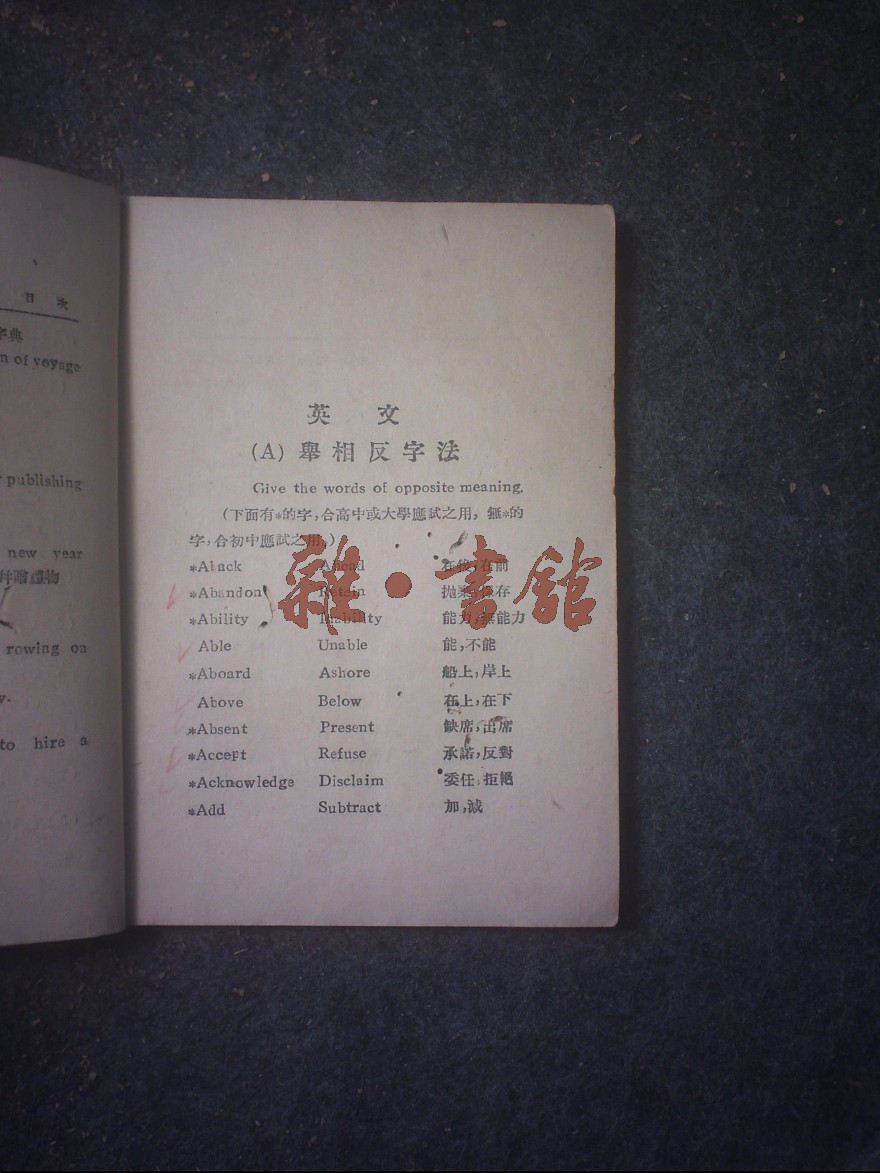 目 次
字典
n of voyage
publishing
new year
幷贈禮物
rowing on
y.
to hire a
英 文
(A) 舉相反字法
Give the words of opposite meaning.
(下面有*的字,合高中或大學應試之用, 無*的
字,合初中應試之用。)
*Aback Ahead 在後,在前
*Abandon Retain 拋棄,保存
*Ability Inability 能力,無能力
Able Unable 能,不能
*Aboard Ashore 船上,岸上
Above Below 在上,在下
*Absent Present 缺席,出席
*Accept Refuse 承諾,反對
*Acknowledge Disclaim 委任,拒絕
*Add Subtract 加,減
雜·書館